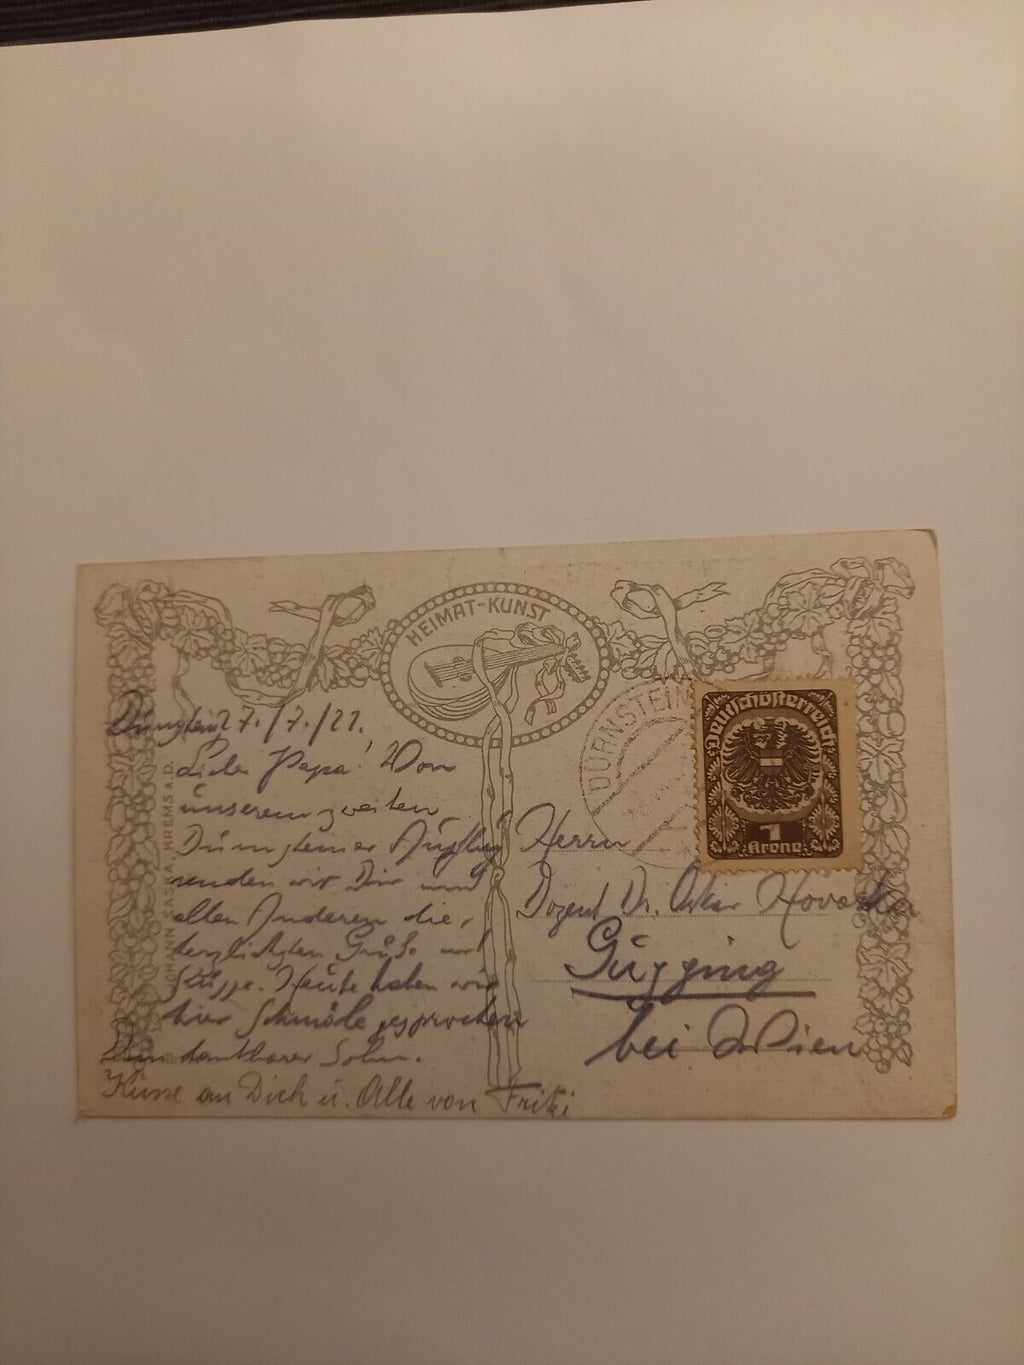 HEIMAT-KUNST
DÜRNSTEIN
Deutschösterreich
1
Krone
JOHANN SASKA, KREMS A.D.
7./7./21.
Lieber Papa! Von
unserem zweiten
Dürnsteiner Ausflug
senden wir Dir und
allen Anderen die
herzlichsten Grüße und
Küsse. Heute haben wir
hier gesprochen
Dein dankbarer Sohn.
Küsse an Dich u. Alle von Fritzi
Herrn
Dozent Dr. Oskar
Gugging
bei Wien